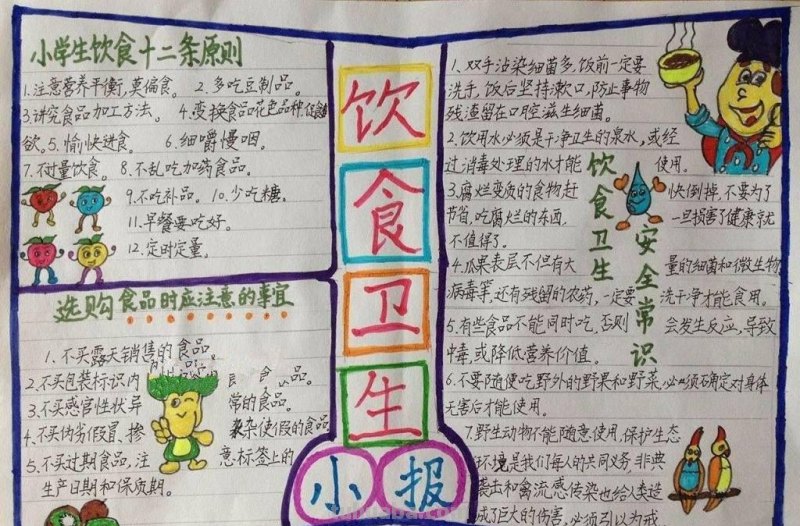 小学生饮食十二条原则
1.注意营养平衡,莫偏食。 2.多吃豆制品。
3.讲究食品加工方法。 4.变换食品花色品种,促食
欲。5.愉快进食。 6.细嚼慢咽。
7.不过量饮食。 8.不乱吃加药食品。
9.不吃补品。 10.少吃糖。
11.早餐要吃好。
12.定时定量。
选购食品时应注意的事宜
1.不买露天销售的食品。
2.不买包装标识内 食品。
3.不买感官性状异 常的食品。
4.不买伪劣假冒、掺 杂使假的食品
5.不买过期食品,注 意标签上的
生产日期和保质期。
饮
食
卫
生
小报
1、双手沾染细菌多,饭前一定要
洗手,饭后坚持漱口,防止事物
残渣留在口腔滋生细菌。
2.饮用水必须是干净卫生的泉水,或经
过消毒处理的水才能 使用。
3.腐烂变质的食物赶 快倒掉,不要为了
节省,吃腐烂的东西, 一旦损害了健康就
不值得了。
4.瓜果表层不但有大 量的细菌和微生物
病毒等,还有残留的农药,一定要 洗干净才能食用。
5.有些食品不能同时吃,否则 会发生反应,导致
中毒,或降低营养价值。
6.不要随便吃野外的野果和野菜,必须确定对身体
无害后才能使用。
7.野生动物不能随意使用,保护生态
环境是我们每人的共同义务,非典
袭击和禽流感传染也给人类造
成了巨大的伤害,必须引以为戒
饮食卫生
安全常识